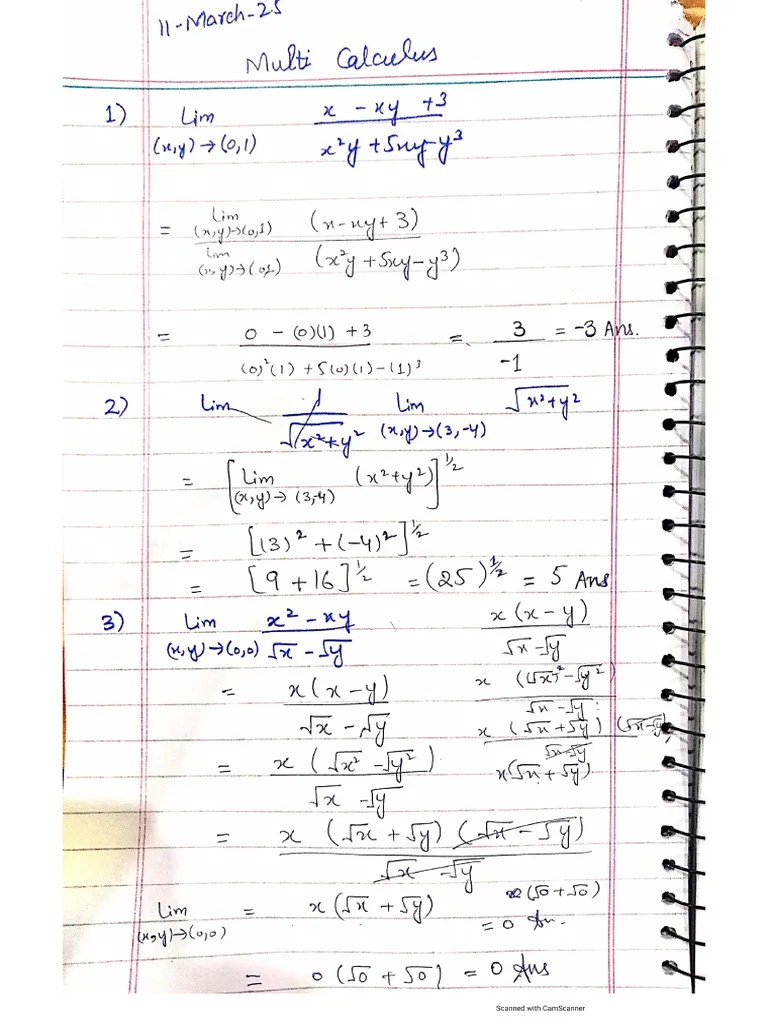 11-March-25
Multi Calculus
1) Lim (x,y)→(0,1) x - xy + 3 / x²y + 5xy - y³
= Lim (x,y)→(0,1) (x - xy + 3) / Lim (x,y)→(0,1) (x²y + 5xy - y³)
= 0 - (0)(1) + 3 / (0)²(1) + 5(0)(1) - (1)³ = 3 / -1 = -3 Ans.
2) Lim 1 / √x²+y² Lim (x,y)→(3,-4) √x²+y²
= [Lim (x,y)→(3,-4) (x²+y²)]^1/2
= [(3)² + (-4)²]^1/2
= [9 + 16]^1/2 = (25)^1/2 = 5 Ans
3) Lim (x,y)→(0,0) x² - xy / √x - √y
= x(x - y) / √x - √y
= x(√x² - √y²) / √x - √y
= x(√x + √y)(√x - √y) / √x - √y
Lim (x,y)→(0,0) = x(√x + √y)
= 0(√0 + √0) = 0 Ans
x(x - y) / √x - √y
x((√x)² - √y²) / √x - √y
x(√x + √y)(√x - √y) / √x - √y
x(√x + √y)
x(√0 + √0)
= 0 An.
Scanned with CamScanner